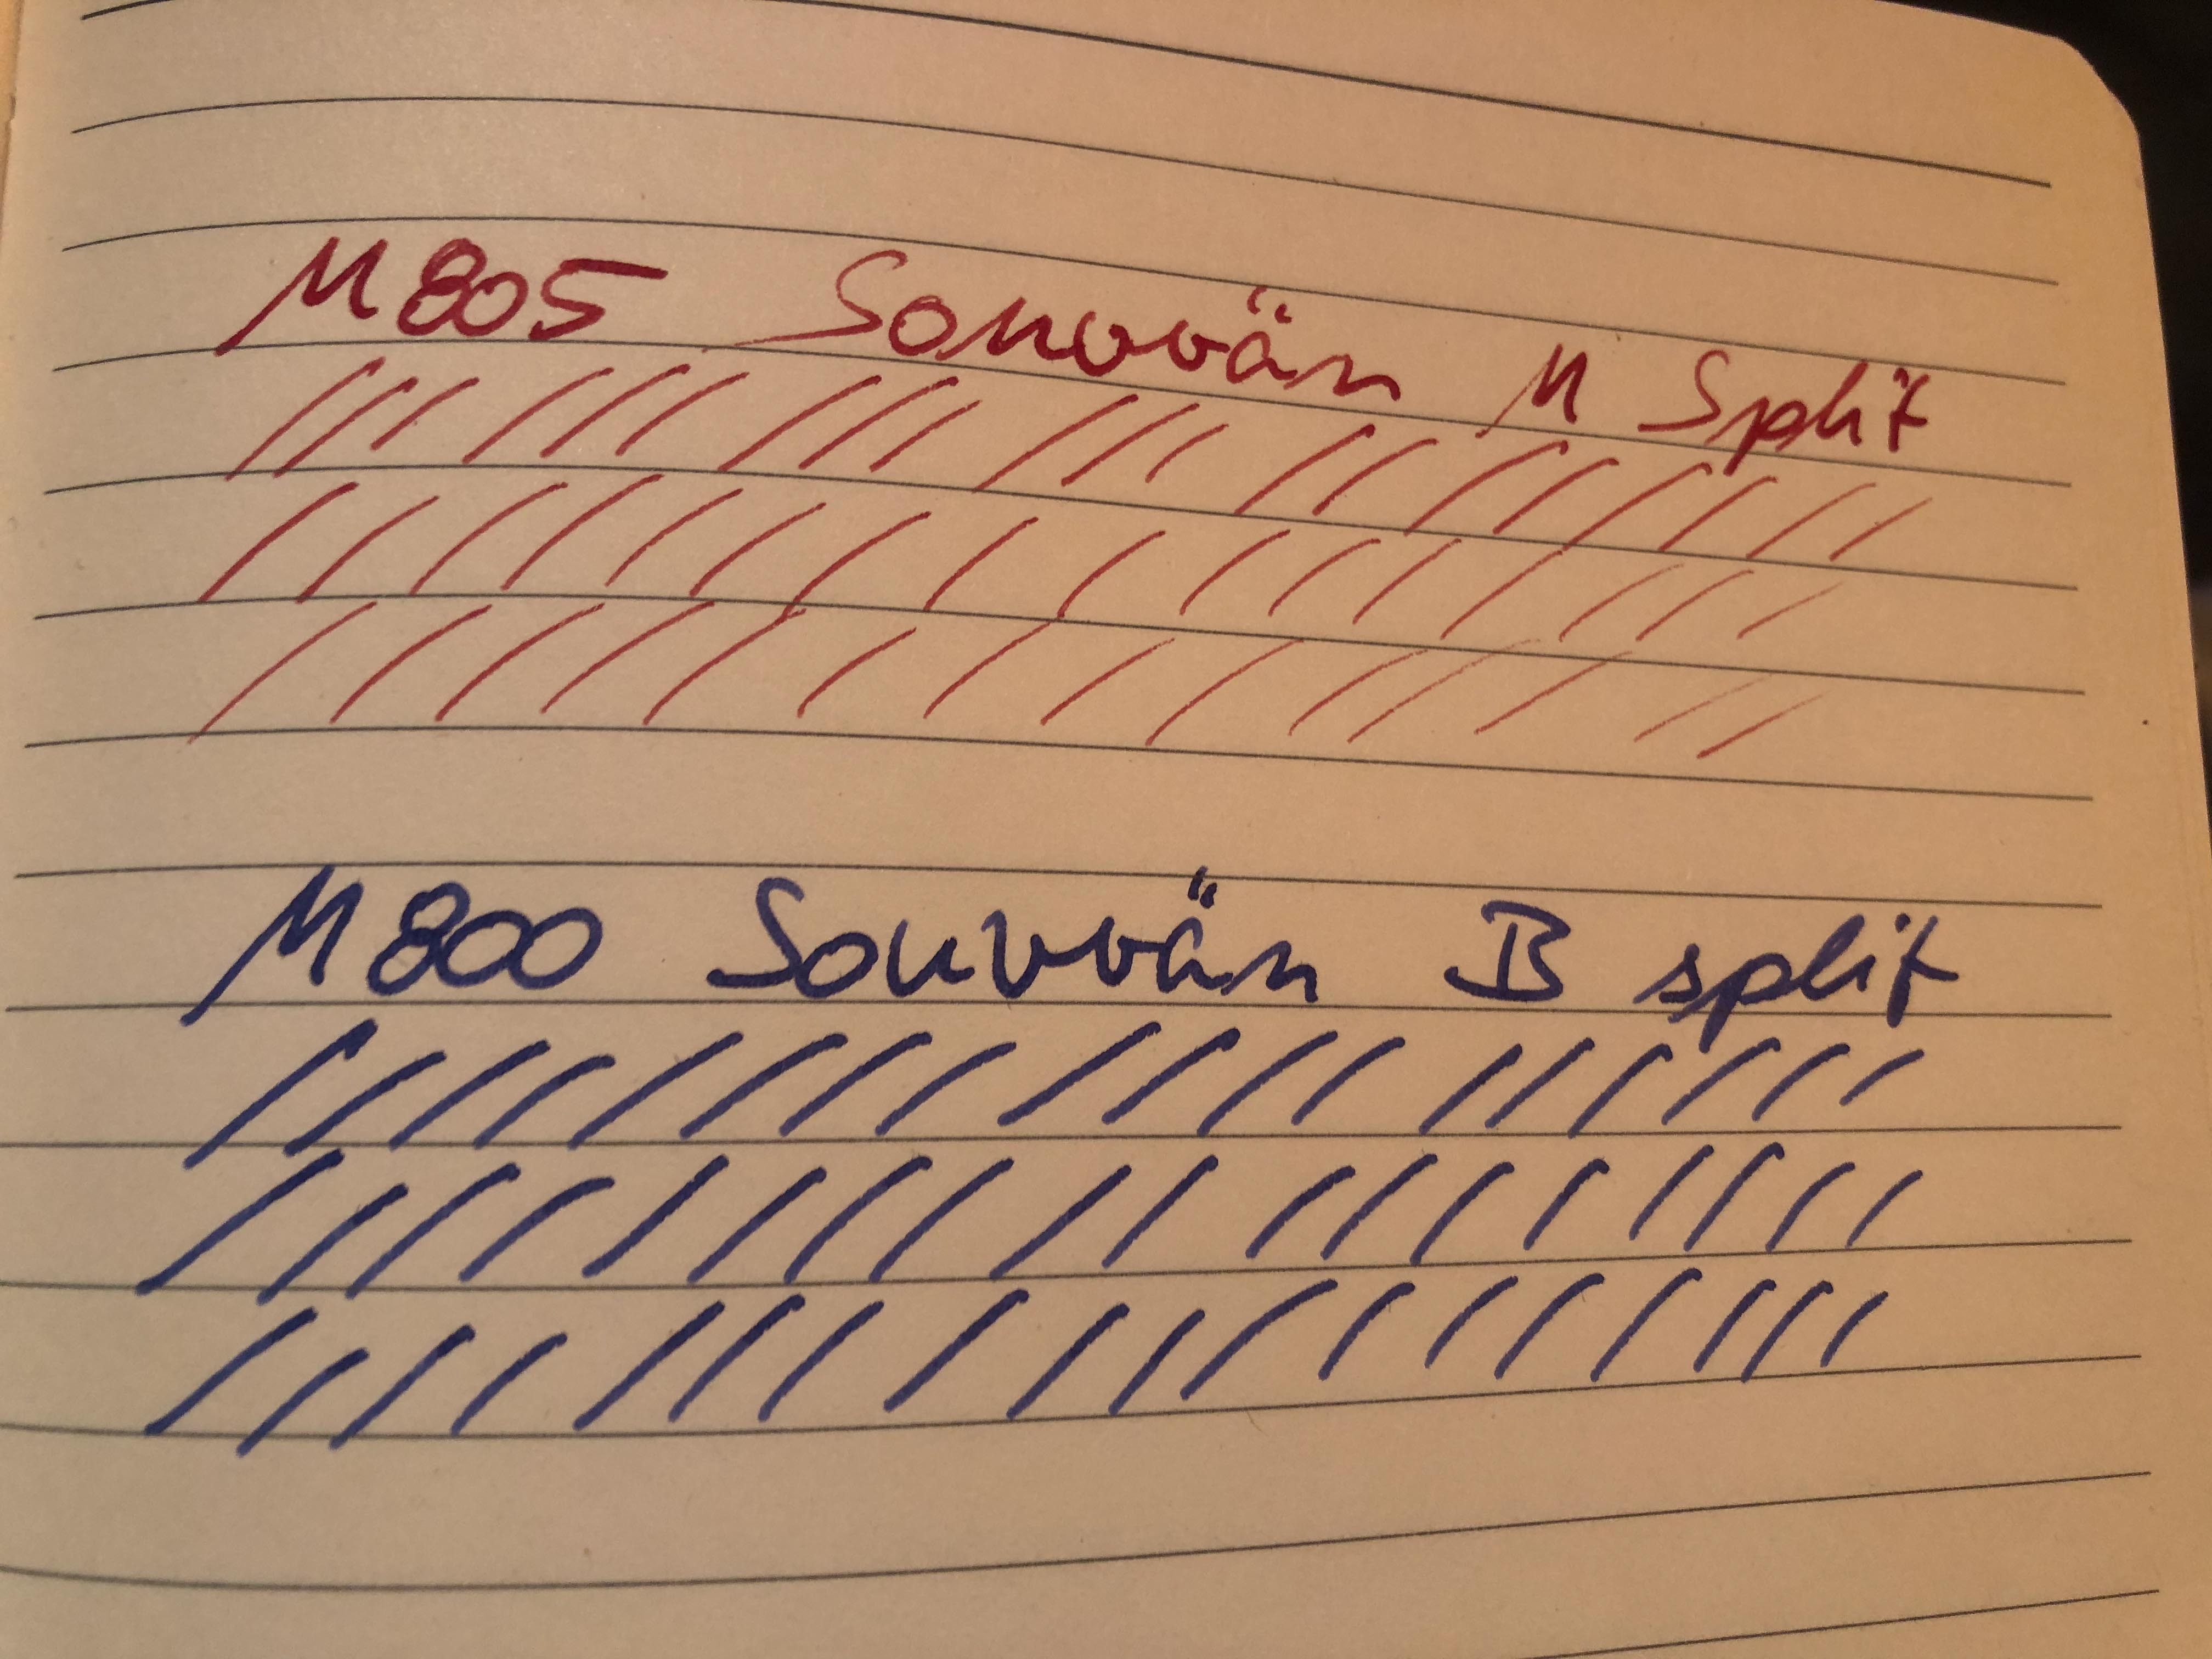 M805 Souverän M Split
M800 Souverän B split